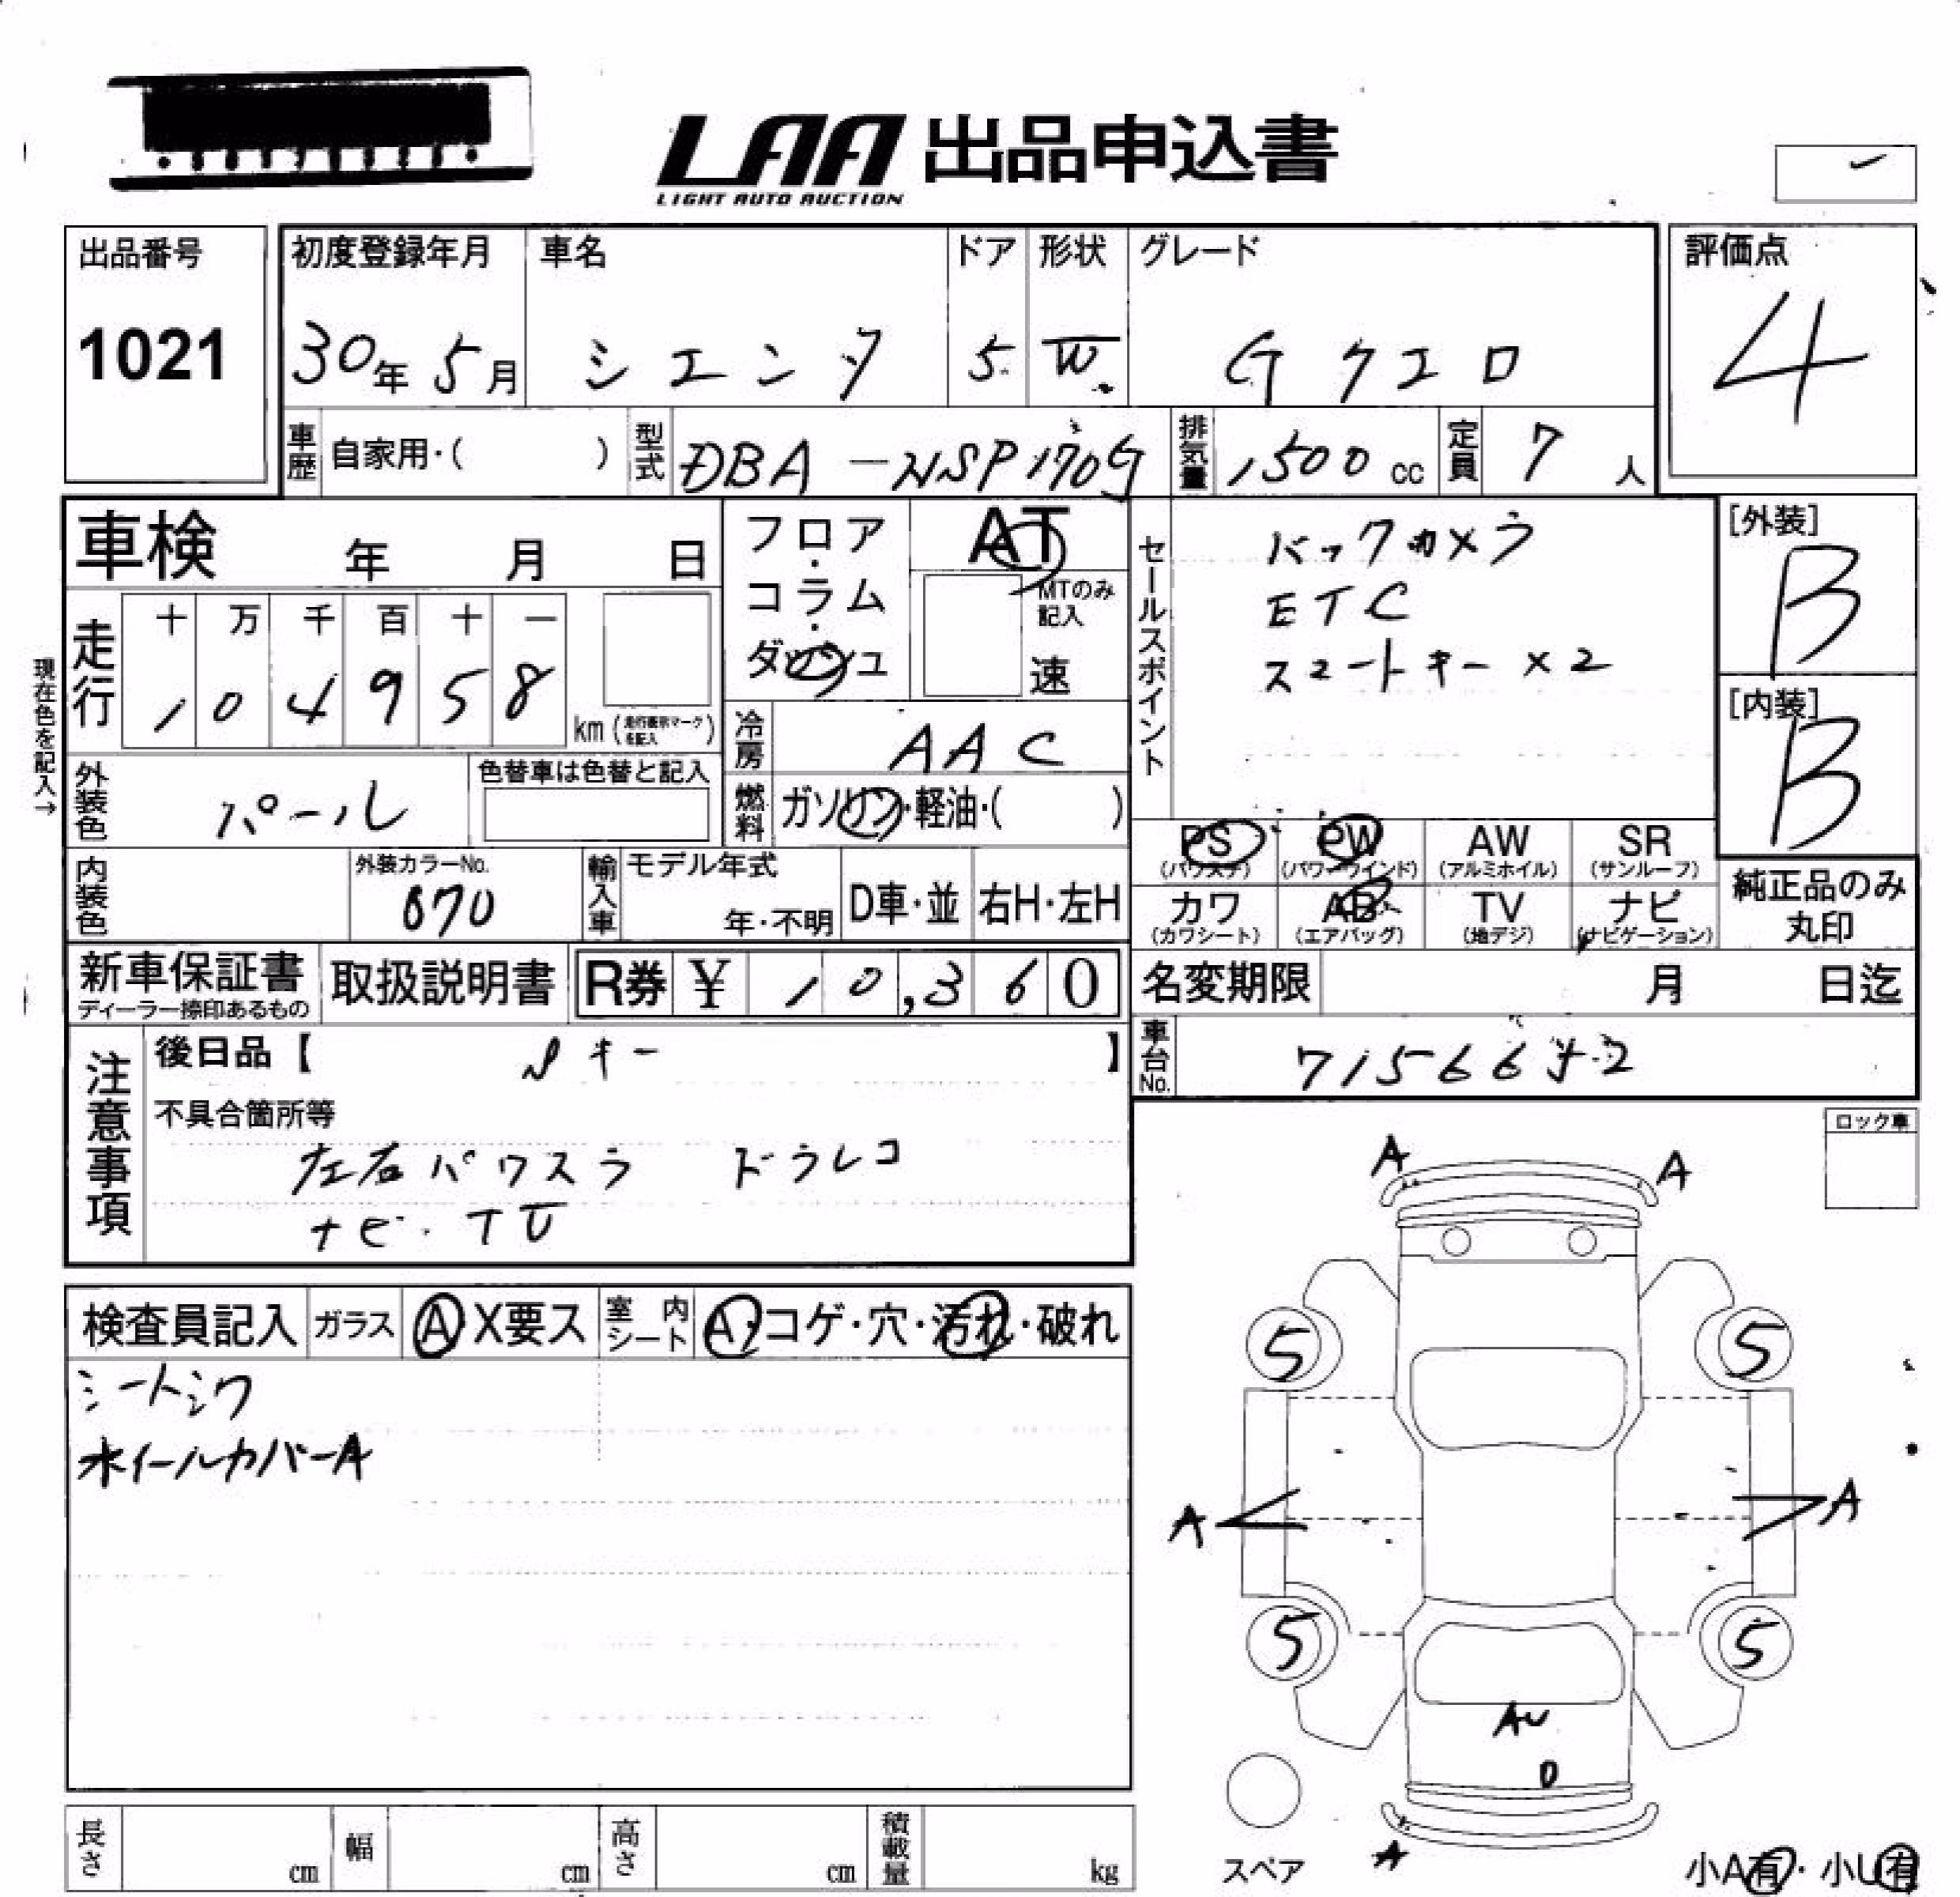 LAA 出品申込書
LIGHT AUTO AUCTION
出品番号
1021
初度登録年月
30年 5月
車名
シエンタ
ドア
5
形状
W
グレード
G クエロ
評価点
4
車歴 自家用・( )
型式 DBA-NSP170G
排気量 1500 cc
定員 7 人
車検 年 月 日
現在色を記入→
走行
十 万 千 百 十 一
1 0 4 9 5 8
km (走行表示マークを記入)
フロア・コラム・ダッシュ
AT
MTのみ記入
速
冷房 AAC
燃料 ガソリン・軽油・( )
外装色 パール
色替車は色替と記入
内装色
外装カラーNo.
070
輸入車
モデル年式
年・不明
D車・並
右H・左H
セールスポイント
バックカメラ
ETC
スマートキー×2
[外装]
B
[内装]
B
PS (パワステ)
PW (パワーウインド)
AW (アルミホイル)
SR (サンルーフ)
カワ (カワシート)
AB (エアバッグ)
TV (地デジ)
ナビ (ナビゲーション)
純正品のみ丸印
新車保証書
ディーラー捺印あるもの
取扱説明書
R券 ¥ 10,360
名変期限 月 日迄
車台No.
注意事項
後日品【 Sキー 】
不具合箇所等
左右パワスラ ドラレコ
ナビ・TV
ロック車
検査員記入
ガラス A X要ス
室内シート A・コゲ・穴・汚れ・破れ
シートシワ
ホイールカバーA
A
A
5
5
A
A
5
5
AU
0
A
スペア
小A有・小U有
長さ cm
幅 cm
高さ cm
積載量 kg